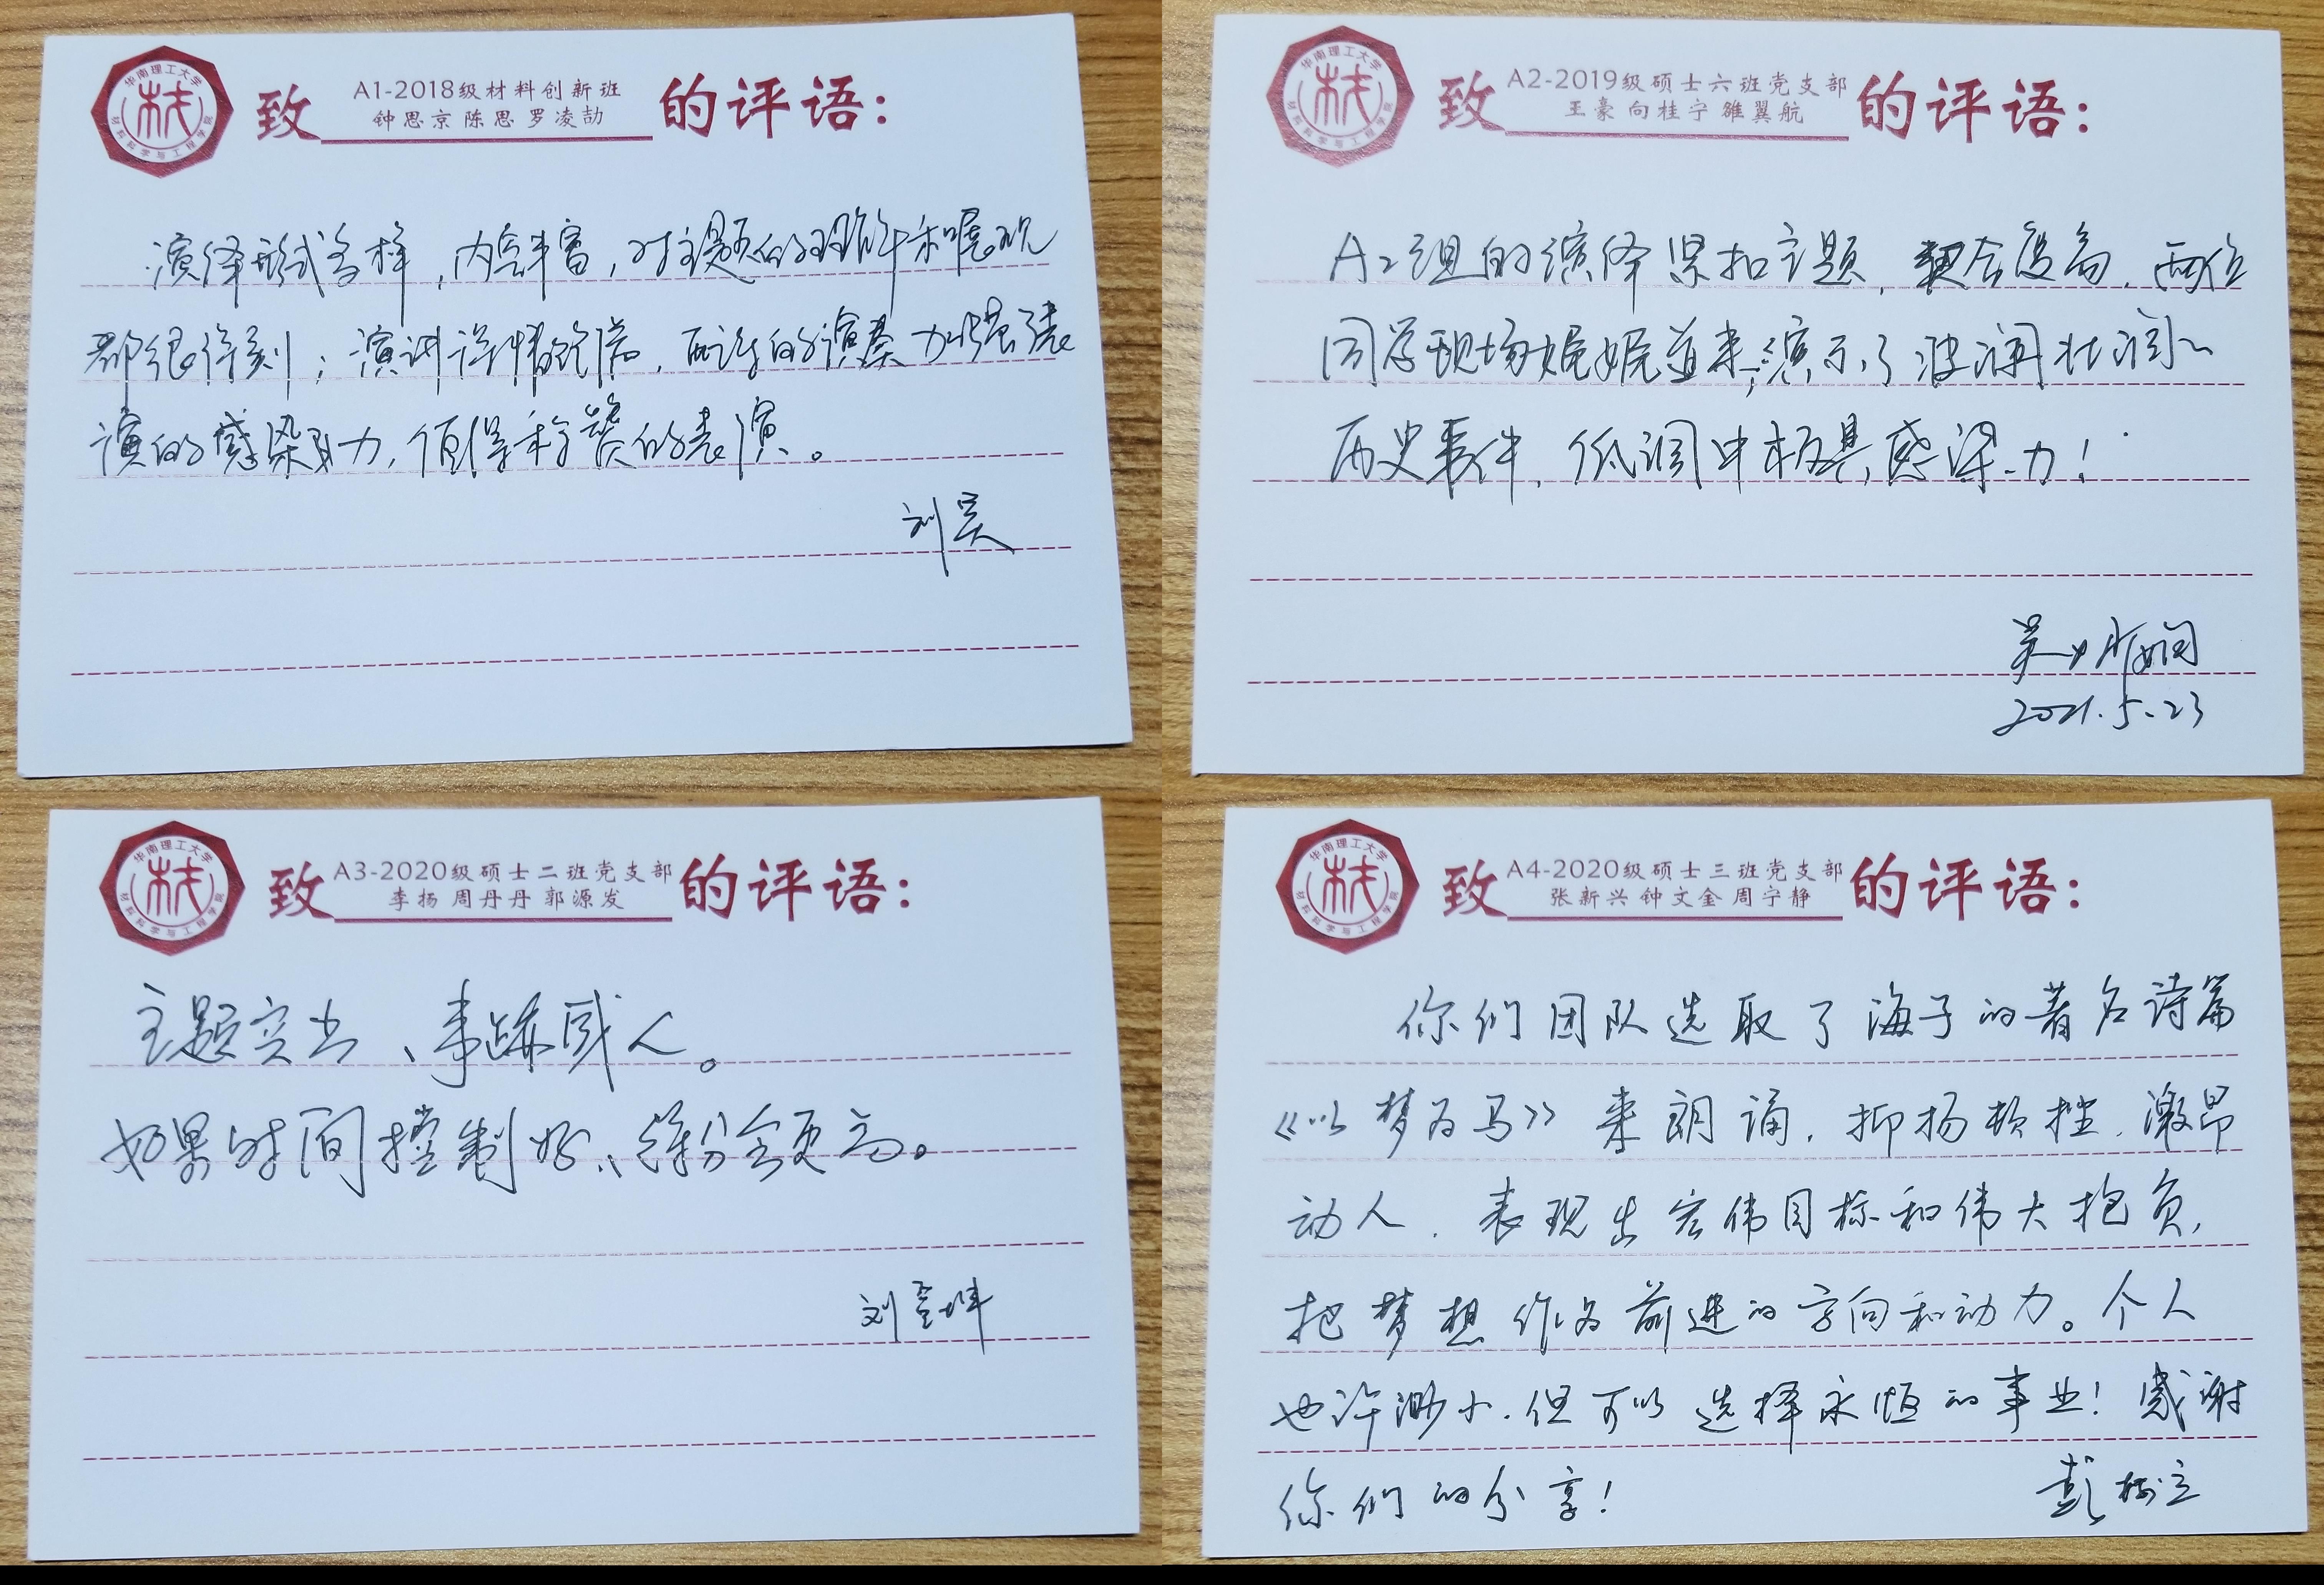 华南理工大学
材
材料科学与工程学院
致 A1-2018级材料创新班 的评语：
钟思京 陈思 罗凌劼
演绎形式多样，内容丰富，对主题的理解和展现
都很得刻；演讲详情，配的演奏加强表
演的感染力，值得称赞的表演。
刘昊
华南理工大学
材
材料科学与工程学院
致 A2-2019级硕士六班党支部 的评语：
王豪 向桂宁 雒翼航
A2组的演绎紧扣主题，契合度高，两位
同学现场娓娓道来，演示了波澜壮阔的
历史事件，低调中极具感染力！
2021.5.23
华南理工大学
材
材料科学与工程学院
致 A3-2020级硕士二班党支部 的评语：
李扬 周丹丹 郭源发
主题突出、事迹感人。
如果时间控制好、得分会更高。
刘
华南理工大学
材
材料科学与工程学院
致 A4-2020级硕士三班党支部 的评语：
张新兴 钟文金 周宁静
你们团队选取了海子的著名诗篇
《以梦为马》来朗诵，抑扬顿挫，激昂
动人，表现出宏伟目标和伟大抱负，
把梦想作为前进的方向和动力。个人
也许渺小，但可以选择永恒的事业！感谢
你们的分享！
彭